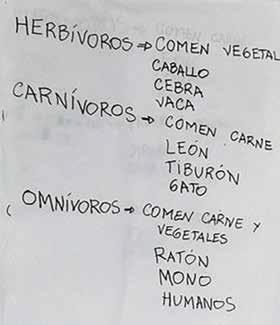 HERBÍVOROS → COMEN VEGETAL
CABALLO
CEBRA
VACA
CARNÍVOROS → COMEN CARNE
LEÓN
TIBURÓN
GATO
OMNÍVOROS → COMEN CARNE Y
VEGETALES
RATÓN
MONO
HUMANOS